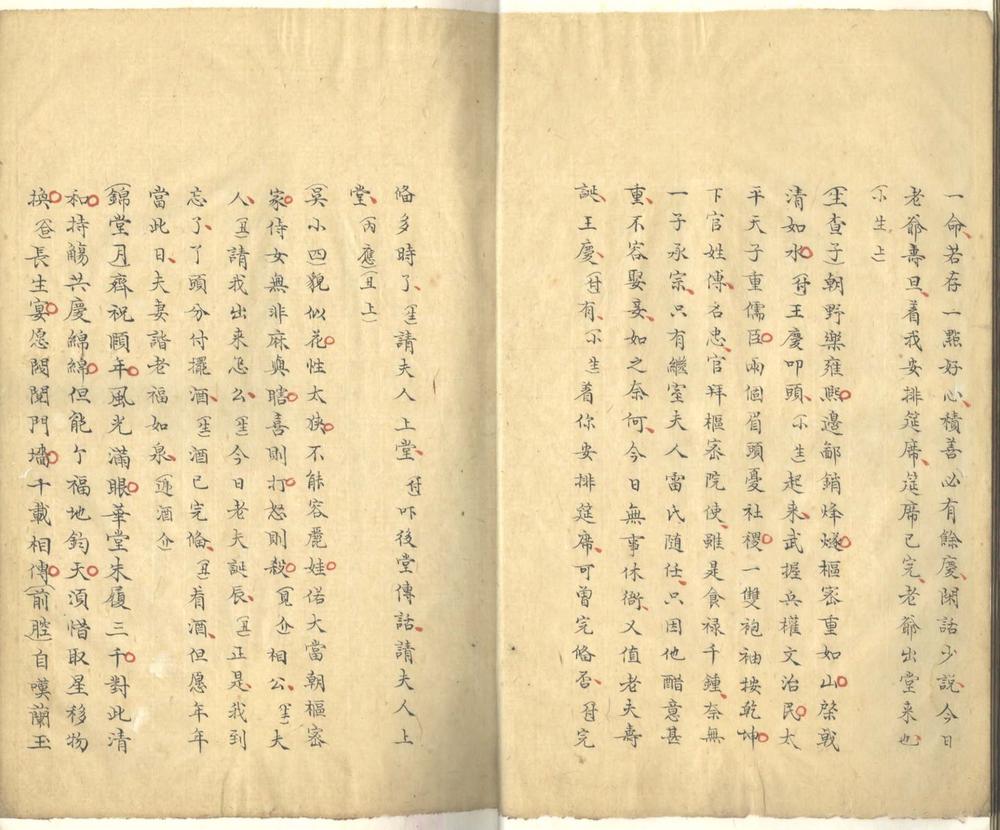 一命若存一點好心積善必有餘慶閑話少說今日
老爺壽旦着我安排筵席筵席已完老爺出堂来也
（小生上）
（生查子）朝野樂雍熙邊鄙銷烽燧樞宻重如山棨戟
清如水（付）王慶叩頭（小生）起来武握兵權文治民太
平天子重儒臣兩個眉頭憂社稷一雙袍袖按乾坤
下官姓傅名忠官拜樞宻院使雖是食禄千鍾奈無
一子承宗只有繼室夫人雷氏随任只因他醋意甚
重不容娶妾如之奈何今日無事休衙又值老夫壽
誕王慶（付）有（小生）着你安排筵席可曾完俻否（付）完
俻多時了（生）請夫人上堂（付）吓後堂傳話請夫人上
堂（丙應）（丑上）
（吳小四）貌似花性太狹不能容麗娃偌大當朝樞宻
家侍女無非麻與瞎喜則打怒則殺（見介）相公（生）夫
人（丑）請我出来怎么（生）今日老夫誕辰（丑）正是我到
忘了丫頭分付擺酒（生）酒已完俻（丑）看酒但愿年年
當此日夫妻諧老福如泉（遞酒介）
（錦堂月）齊祝頤年風光滿眼華堂朱履三千對此清
和持觴共慶綿綿但能个福地鈞天須惜取星移物
換（合）長生宴愿閥閱門墻千載相傳（前腔）自嘆蘭玉